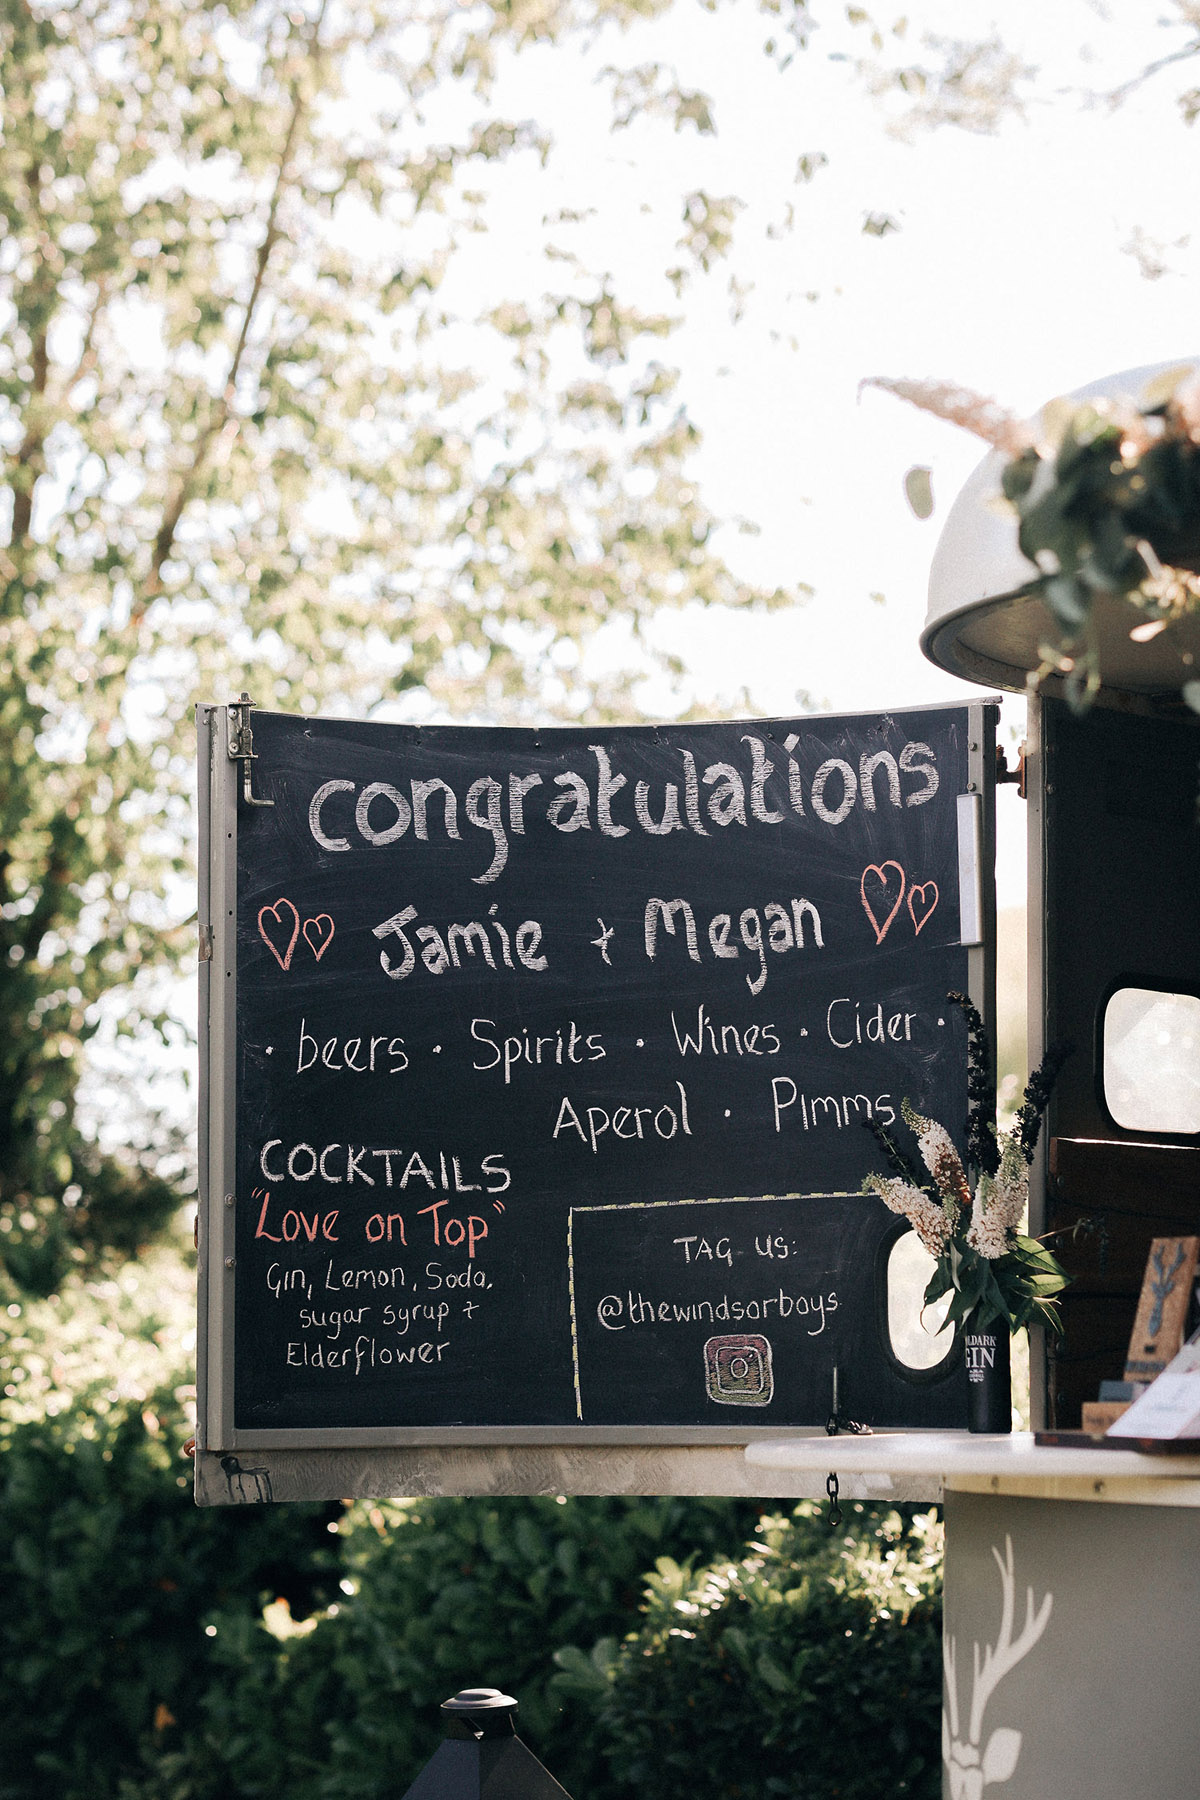 congratulations
Jamie + Megan
· beers · Spirits · Wines · Cider ·
Aperol · Pimms
COCKTAILS
"Love on Top"
Gin, Lemon, Soda,
sugar syrup +
Elderflower
TAG US:
@thewindsorboys
GIN